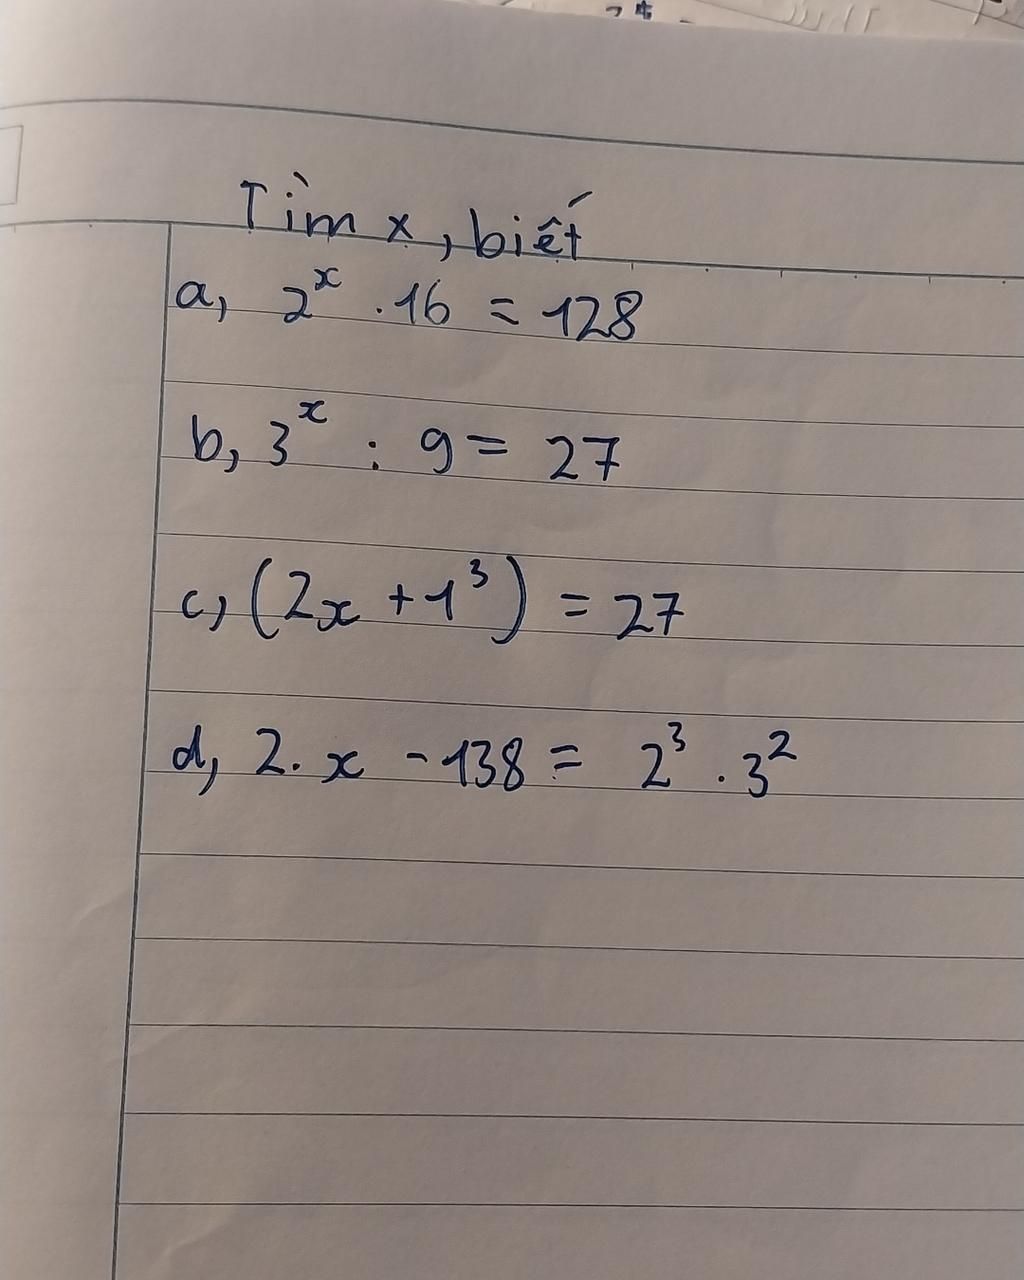 Tìm x, biết
a, 2^x . 16 = 128
b, 3^x : 9 = 27
c, (2x + 1^3) = 27
d, 2. x - 138 = 2^3 . 3^2